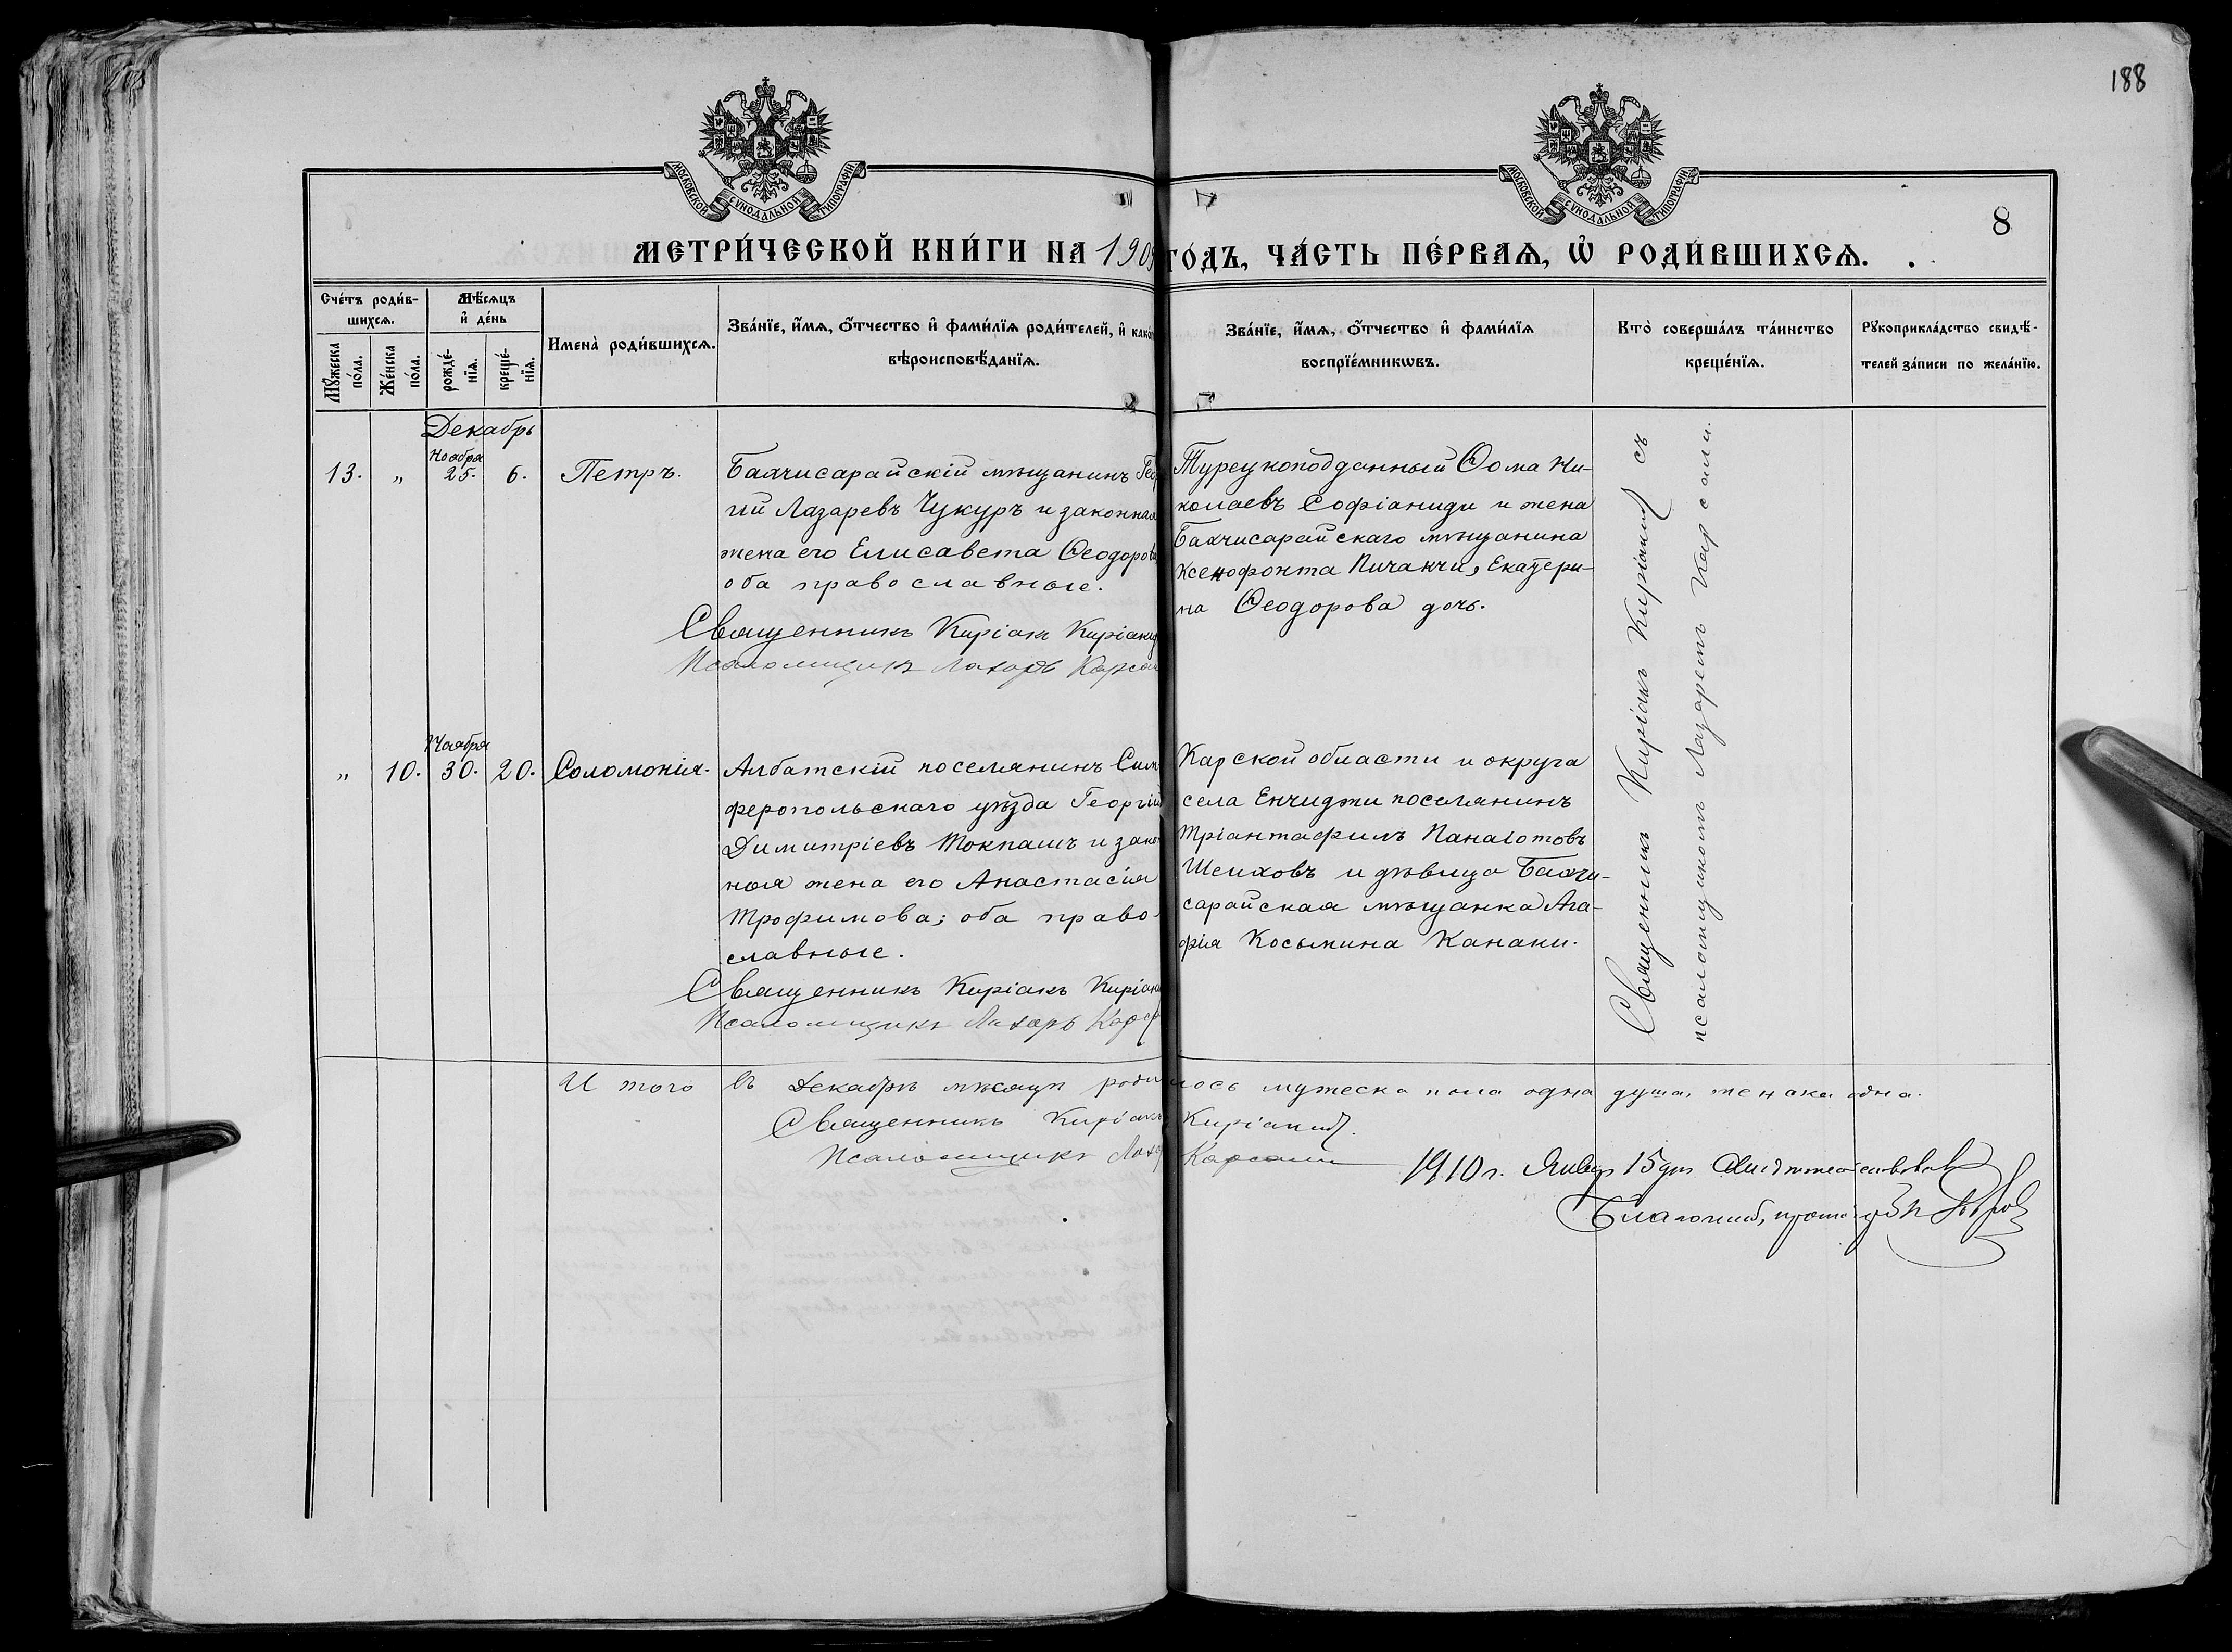 188
МОСКОВСКОЙ СѴНОДАЛЬНОЙ ТИПОГРАФІИ
МОСКОВСКОЙ СѴНОДАЛЬНОЙ ТИПОГРАФІИ
8
МЕТРИ́ЧЕСКОЙ КНИ́ГИ НА 1909 ГО́ДЪ, ЧА́СТЬ ПЕ́РВАѦ, Ѿ РОДИ́ВШИХСѦ.
Сче́тъ роди́в-
шихсѧ.
Мꙋ́жеска по́ла.
Же́нска по́ла.
Мѣ́сѧцъ и҆ де́нь
рожде́-
нїѧ.
креще́-
нїѧ.
Имена̀ роди́вшихсѧ.
Зва́нїе, и҆́мѧ, ѻ҆́тчество и҆ фами́лїѧ роди́телей, и҆ како́
вѣроисповѣ́данїѧ.
Зва́нїе, и҆́мѧ, ѻ҆́тчество и҆ фами́лїѧ
воспрїе́мникѡвъ.
Кто̀ соверша́лъ та́инство
креще́нїѧ.
Рꙋкоприкла́дство свидѣ́-
телей за́писи по жела́нїю.
Декабрь
13. „ Ноября 25. 6. Петръ.
Бахчисарайскій мѣщанинъ Геор
гій Лазаревъ Чукуръ и законная
жена его Елисавета Ѳеодорова
оба православные.
Священникъ Киріакъ Киріакид
Псаломщикъ Лазарь Карса
Турецкоподданный Ѳома Ни-
колаевъ Софіаниди и жена
Бахчисарайскаго мѣщанина
Ксенофонта Пичакчи, Екатери-
на Ѳеодорова дочь.
„ 10. Ноября 30. 20. Соломонія.
Албатскій поселянинъ Сим
феропольскаго уѣзда Георгій
Димитріевъ Токпашъ и закон
ная жена его Анастасія
Трофимова; оба право-
славные.
Священникъ Киріакъ Киріаки
Псаломщикъ Лазарь Карса
Карской области и округа
села Енчиджи поселянинъ
Тріантафилъ Панаіотовъ
Шеиховъ и дѣвица Бахчи-
сарайская мѣщанка Ага-
фія Косьмина Канаки.
Священникъ Киріакъ Киріакид съ
псаломщикомъ Лазаремъ Карсали.
И того въ Декабрѣ мѣсяцѣ родилось мужеска пола одна душа, женска одна.
Священникъ Киріакъ Киріакид.
Псаломщикъ Лазар Карсали
1910 г. Январ 15 дня
Благочин,